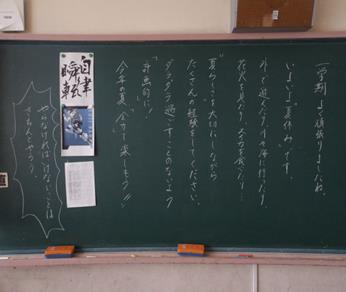 一学期よく頑張りましたね。
いよいよ"夏休み"です。
外で遊んだり川や海へ行ったり、
花火を見たり、スイカを食べたり…
"夏らしさ"を大切にしながら
たくさんの経験をしてください。
ダラダラ過ごすことのないよう
"計画的に!
今年の夏、全力で楽しもう!!
自律
瞬転
やらなければいけないことは
きちんとやろう。